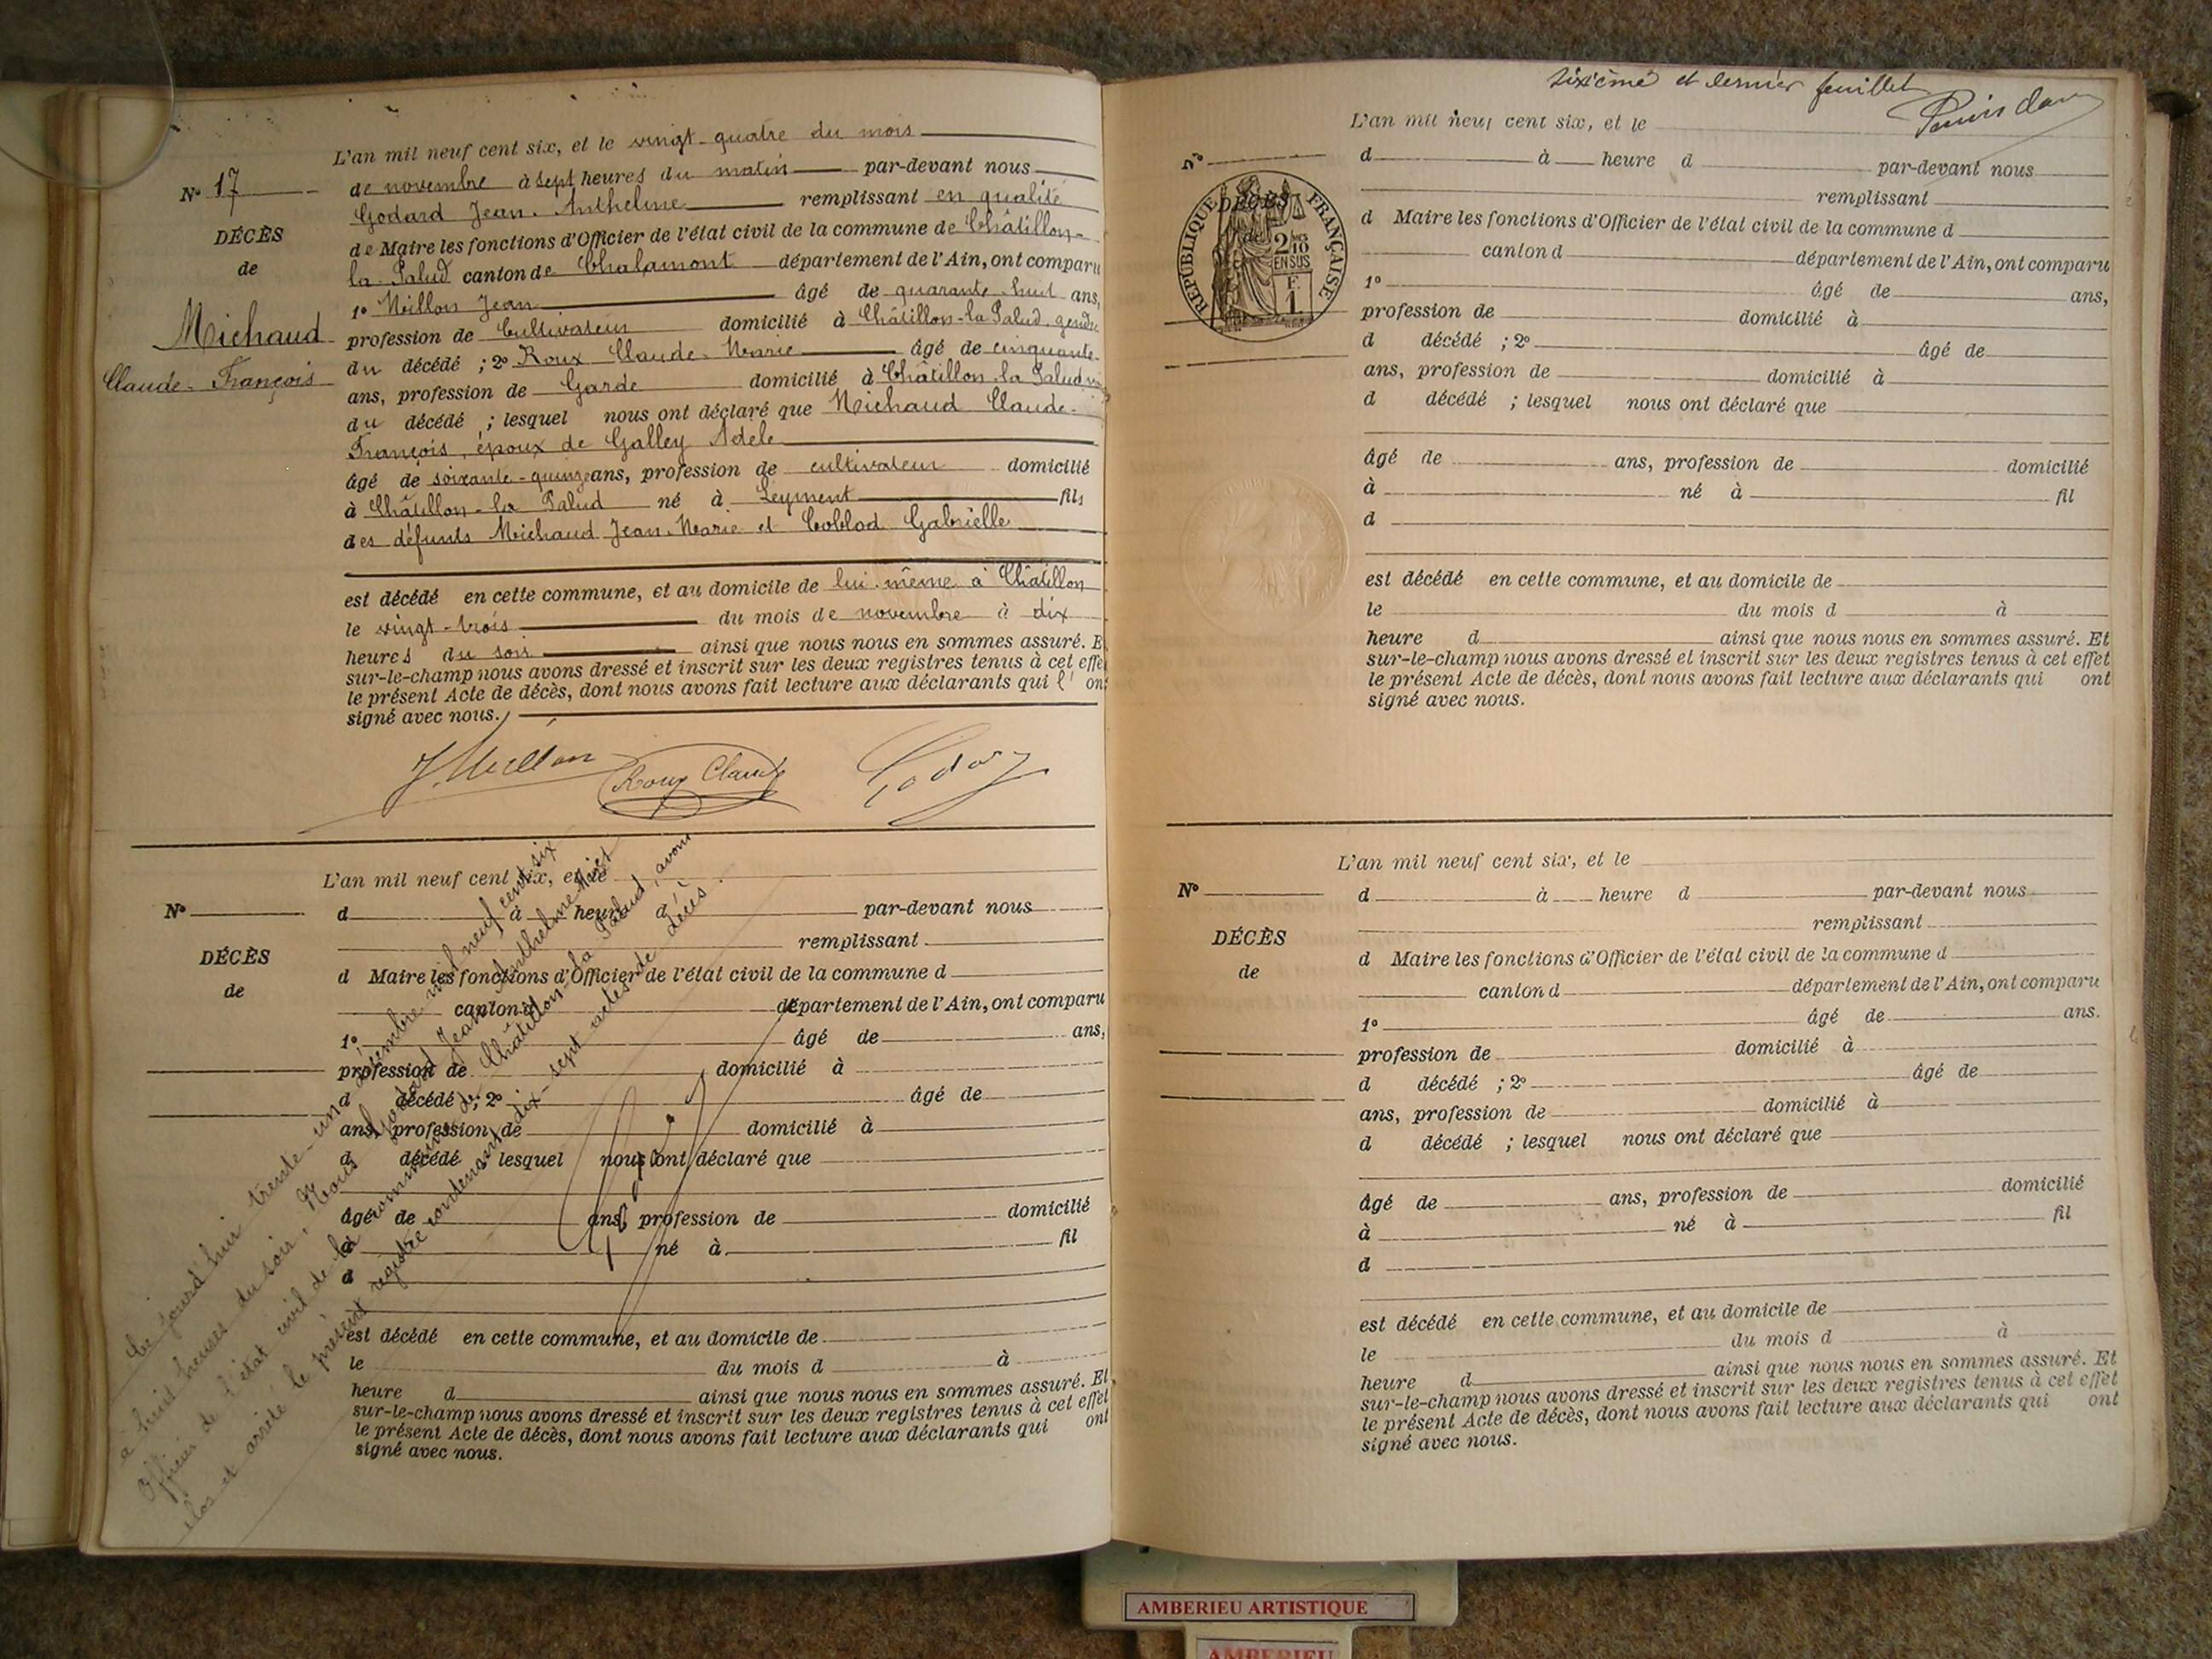 L'an mil neuf cent six, et le vingt-quatre du mois
de novembre à sept heures du matin par-devant nous
Godard Jean-Anthelme remplissant en qualité
de Maire les fonctions d'Officier de l'état civil de la commune de Châtillon-
la-Palud canton de Chalamont département de l'Ain, ont comparu
1° Millon Jean âgé de quarante-huit ans,
profession de Cultivateur domicilié à Châtillon-la-Palud, gendre
du décédé ; 2° Roux Claude-Marie âgé de cinquante-
ans, profession de Garde domicilié à Châtillon-la-Palud
du décédé ; lesquel nous ont déclaré que Michaud Claude-
François, époux de Galley Adèle
âgé de soixante-quinze ans, profession de cultivateur domicilié
à Châtillon-la-Palud né à Leyment fils
des défunts Michaud Jean-Marie et Coblod Gabrielle
est décédé en cette commune, et au domicile de lui-même à Châtillon
le vingt-trois du mois de novembre à dix
heures du soir ainsi que nous nous en sommes assuré. E
sur-le-champ nous avons dressé et inscrit sur les deux registres tenus à cet effe
le présent Acte de décès, dont nous avons fait lecture aux déclarants qui l' ont
signé avec nous.
N° 17
DÉCÈS
de
Michaud
Claude-François
J Millon Roux Claude Godard
L'an mil neuf cent six, et le
d à heure d par-devant nous
remplissant
d Maire les fonctions d'Officier de l'état civil de la commune d
canton d département de l'Ain, ont comparu
1° âgé de ans,
profession de domicilié à
d décédé ; 2° âgé de
ans, profession de domicilié à
d décédé ; lesquel nous ont déclaré que
âgé de ans, profession de domicilié
à né à fil
d
est décédé en cette commune, et au domicile de
le du mois d à
heure d ainsi que nous nous en sommes assuré. Et
sur-le-champ nous avons dressé et inscrit sur les deux registres tenus à cet effet
le présent Acte de décès, dont nous avons fait lecture aux déclarants qui ont
signé avec nous.
N°
DÉCÈS
de
Ce jourd'hui trente-un décembre mil neuf cent six
à huit heures du soir, Nous Godard Jean Anthelme Maire
Officier de l'état civil de la commune de Châtillon-la-Palud, avons
clos et arrêté le présent registre contenant dix-sept actes de décès.
sixième et dernier feuillet
L'an mil neuf cent six, et le
d à heure d par-devant nous
remplissant
d Maire les fonctions d'Officier de l'état civil de la commune d
canton d département de l'Ain, ont comparu
1° âgé de ans,
profession de domicilié à
d décédé ; 2° âgé de
ans, profession de domicilié à
d décédé ; lesquel nous ont déclaré que
âgé de ans, profession de domicilié
à né à fil
d
est décédé en cette commune, et au domicile de
le du mois d à
heure d ainsi que nous nous en sommes assuré. Et
sur-le-champ nous avons dressé et inscrit sur les deux registres tenus à cet effet
le présent Acte de décès, dont nous avons fait lecture aux déclarants qui ont
signé avec nous.
N°
DÉCÈS
de
RÉPUBLIQUE FRANÇAISE
2/10
EN SUS
F
1
L'an mil neuf cent six, et le
d à heure d par-devant nous
remplissant
d Maire les fonctions d'Officier de l'état civil de la commune d
canton d département de l'Ain, ont comparu
1° âgé de ans.
profession de domicilié à
d décédé ; 2° âgé de
ans, profession de domicilié à
d décédé ; lesquel nous ont déclaré que
âgé de ans, profession de domicilié
à né à fil
d
est décédé en cette commune, et au domicile de
le du mois d à
heure d ainsi que nous nous en sommes assuré. Et
sur-le-champ nous avons dressé et inscrit sur les deux registres tenus à cet effet
le présent Acte de décès, dont nous avons fait lecture aux déclarants qui ont
signé avec nous.
N°
DÉCÈS
de
AMBERIEU ARTISTIQUE
AMBERIEU